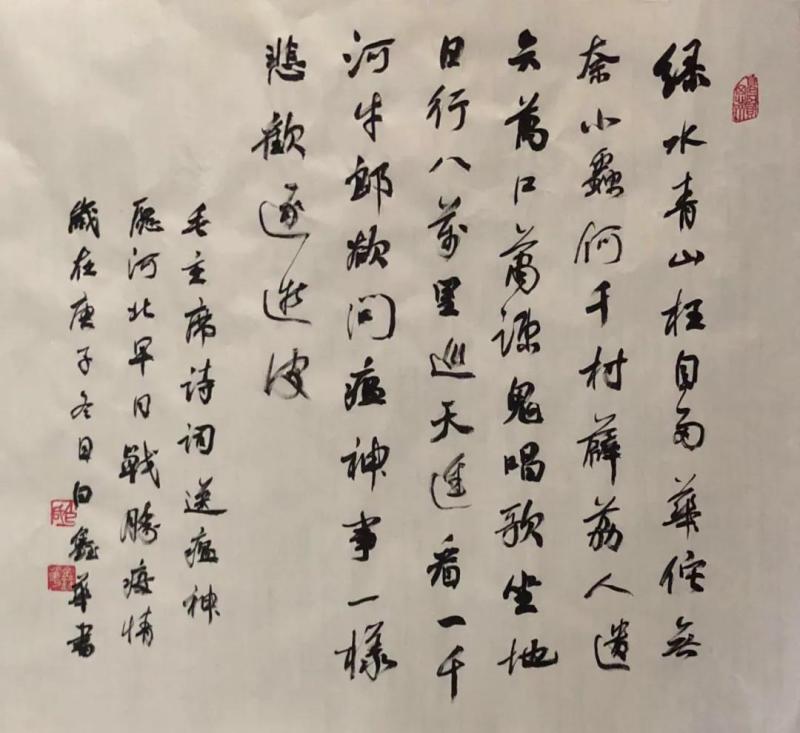 绿水青山枉自多華佗无
奈小蟲何千村薜荔人遗
矢萬户萧疎鬼唱歌坐地
日行八萬里巡天遥看一千
河牛郎欲问瘟神事一樣
悲歡逐逝波
毛主席诗词送瘟神
愿河北早日戰勝疫情
歲在庚子冬日白鑫華書